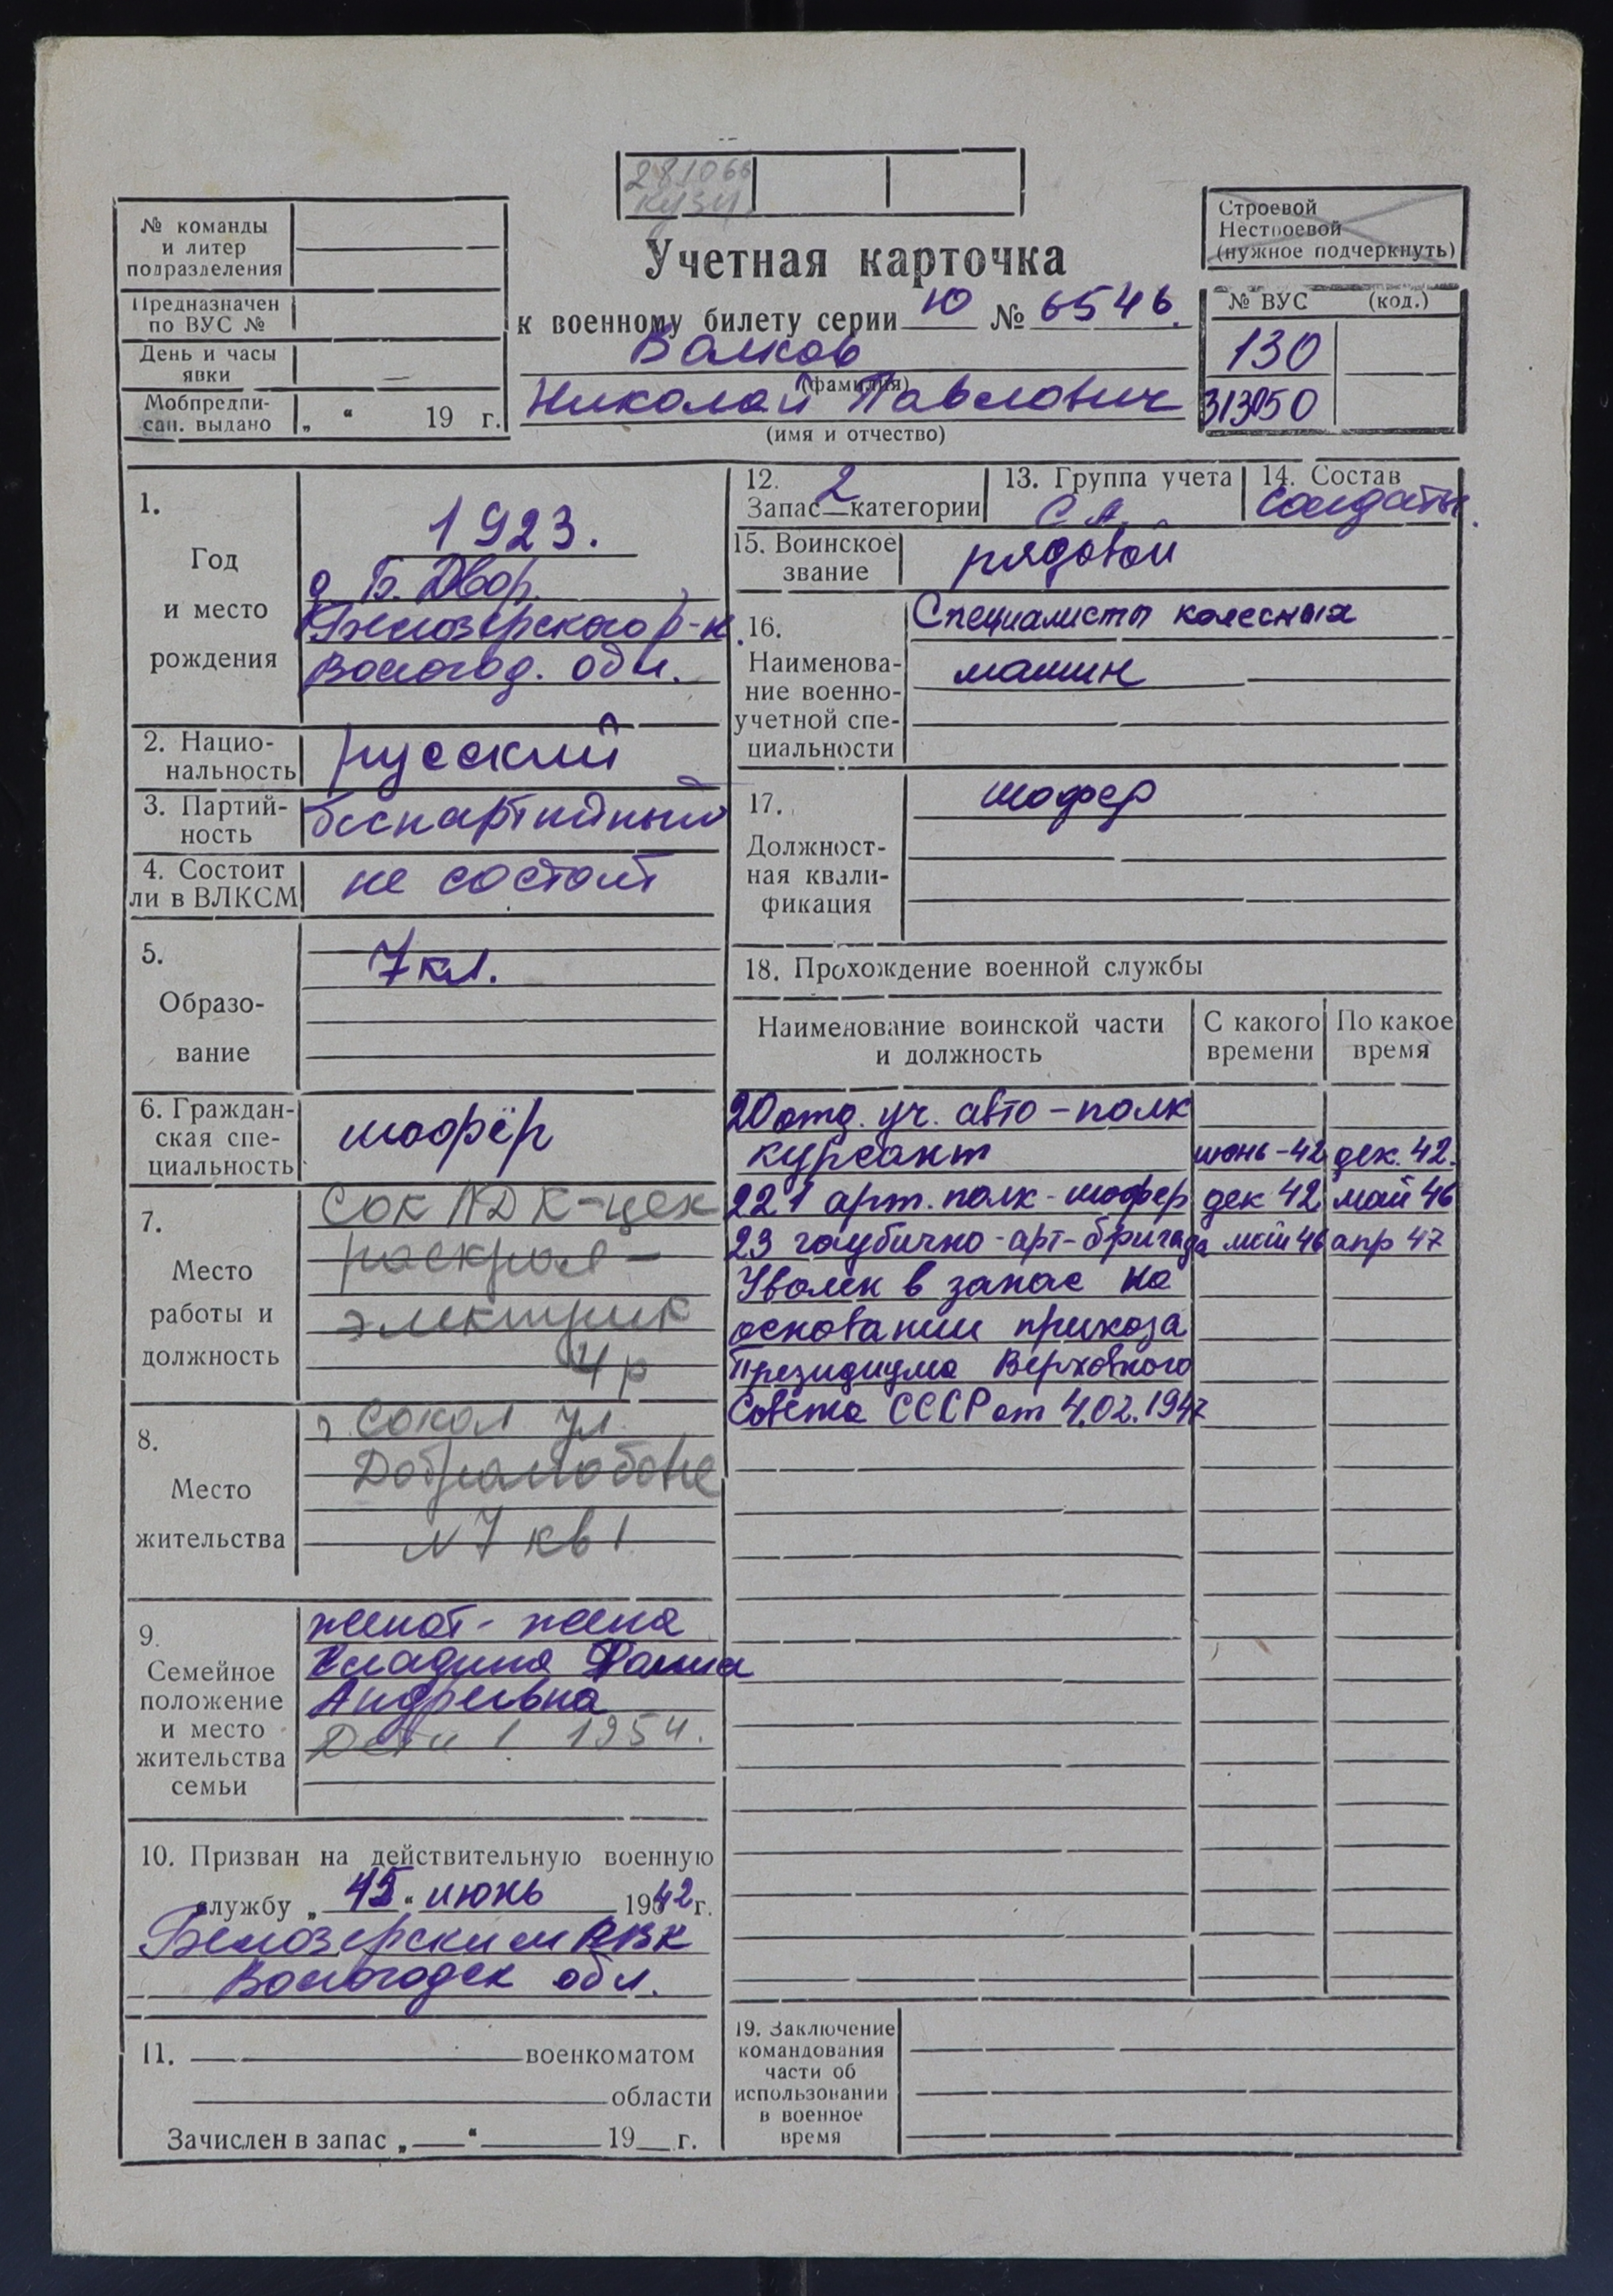 281066
кузн.
№ команды
и литер
подразделения
Предназначен
по ВУС №
День и часы
явки
Мобпредпи-
сан. выдано „ “ 19 г.
Учетная карточка
к военному билету серии Ю № 6546.
Волков
(фамилия)
Николай Павлович
(имя и отчество)
Строевой
Нестроевой
(нужное подчеркнуть)
№ ВУС (код.)
130
313050
1.
Год
и место
рождения
1923.
д. Б. Двор.
Белозерского р-н.
Вологод. обл.
2. Нацио-
нальность
русский
3. Партий-
ность
беспартийный
4. Состоит
ли в ВЛКСМ
не состоит
5.
Образо-
вание
7 кл.
6. Граждан-
ская спе-
циальность
шофёр
7.
Место
работы и
должность
Сок ЛДК-цех
раскроя-
электрик
4 р
8.
Место
жительства
г Сокол ул.
N 7 кв 1
9.
Семейное
положение
и место
жительства
семьи
женат- жена
Андреевна
Дети 1 1954.
10. Призван на действительную военную
службу „15“ июнь 1942 г.
Белозерским РВК
Вологодск обл.
11. военкоматом
области
Зачислен в запас „ “ 19 г.
12. 2
Запас категории
13. Группа учета
С.А.
14. Состав
солдаты.
15. Воинское
звание
рядовой
16.
Наименова-
ние военно-
учетной спе-
циальности
Специалисты колесных
машин
17.
Должност-
ная квали-
фикация
шофер
18. Прохождение военной службы
Наименование воинской части
и должность
С какого
времени
По какое
время
20 отд. уч. авто-полк
курсант июнь-42 дек. 42.
221 арт. полк - шофер дек 42 май 46
23 гаубично-арт-бригада май 46 апр 47
Уволен в запас на
основании приказа
Президиума Верховного
Совета СССР от 4.02.1947
19. Заключение
командования
части об
использовании
в военное
время